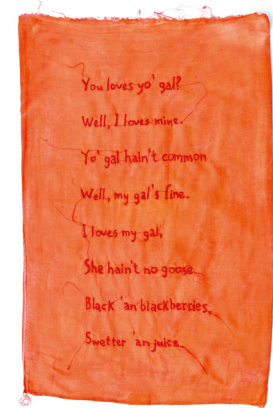 You loves yo' gal?
Well, I loves mine.
Yo' gal hain't common
Well, my gal's fine.
I loves my gal,
She hain't no goose
Black 'an blackbersies,
Swetter 'an juice.